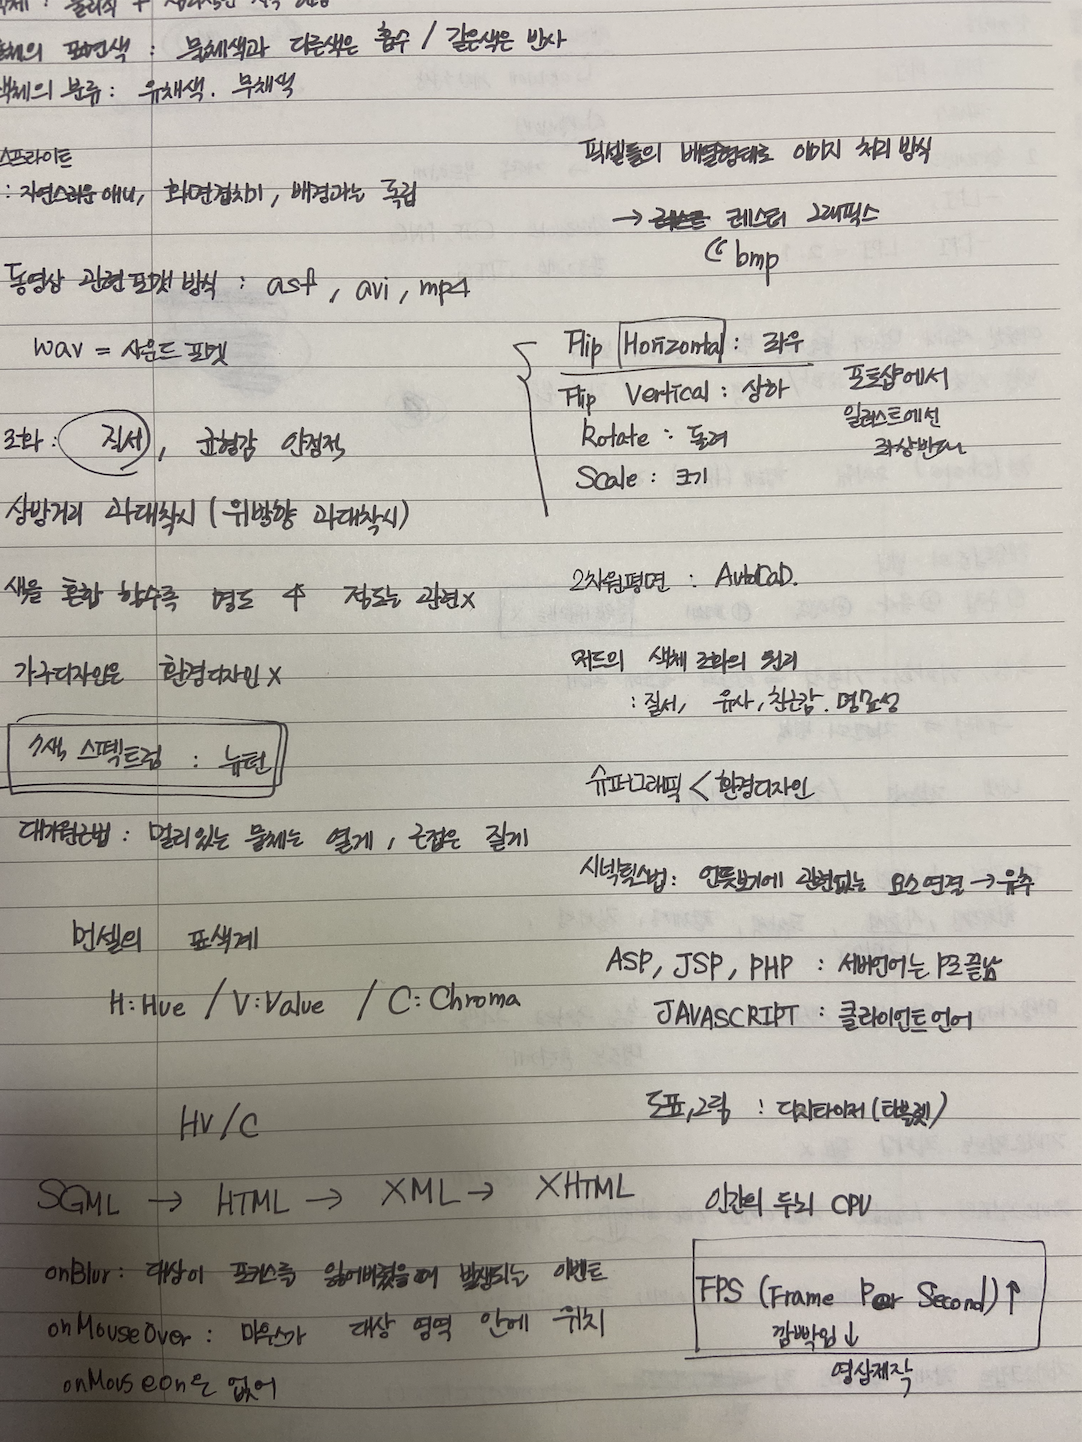 물체의 표면색 : 물체색과 다른색은 흡수 / 같은색은 반사
색체의 분류 : 유채색. 무채색
스프라이트
: 자연스러운 애니, 화면겹치기, 배경과는 독립
동영상 관련 포맷 방식 : asf, avi, mp4
wav = 사운드 포멧
조화 : 질서, 균형감 안정적
상방거리 과대착시 (위방향 과대착시)
색을 혼합 할수록 명도 ↑ 점도는 관련X
가구디자인은 환경디자인 X
7색 스펙트럼 : 뉴턴
대기원근법 : 멀리있는 물체는 옅게, 근접은 짙게
먼셀의 표색계
H:Hue / V:Value / C:Chroma
HV/C
SGML → HTML → XML → XHTML
onBlur : 대상이 포커스를 잃어버렸을 때 발생되는 이벤트
onMouseOver : 마우스가 대상 영역 안에 위치
onMouseOn은 없어
픽셀들의 배열형태로 이미지 처리 방식
→ 레스터 그래픽스
bmp
Flip Horizontal : 좌우
Flip Vertical : 상하
Rotate : 돌려
Scale : 크기
포토샵에서
일러스트에선
2차원평면 : AutoCaD.
저드의 색체 조화의 원리
: 질서, 유사, 친근감. 명료성
슈퍼그래픽 < 환경디자인
시넥틱스법 : 언뜻보기에 관련없는 요소 연결 → 유추
ASP, JSP, PHP : 서버언어는 P로끝남
JAVASCRIPT : 클라이언트 언어
도표,그림 : 디지타이저 (타블렛)
인간의 두뇌 CPU
FPS (Frame Per Second) ↑
깜빡임 ↓
영상제작